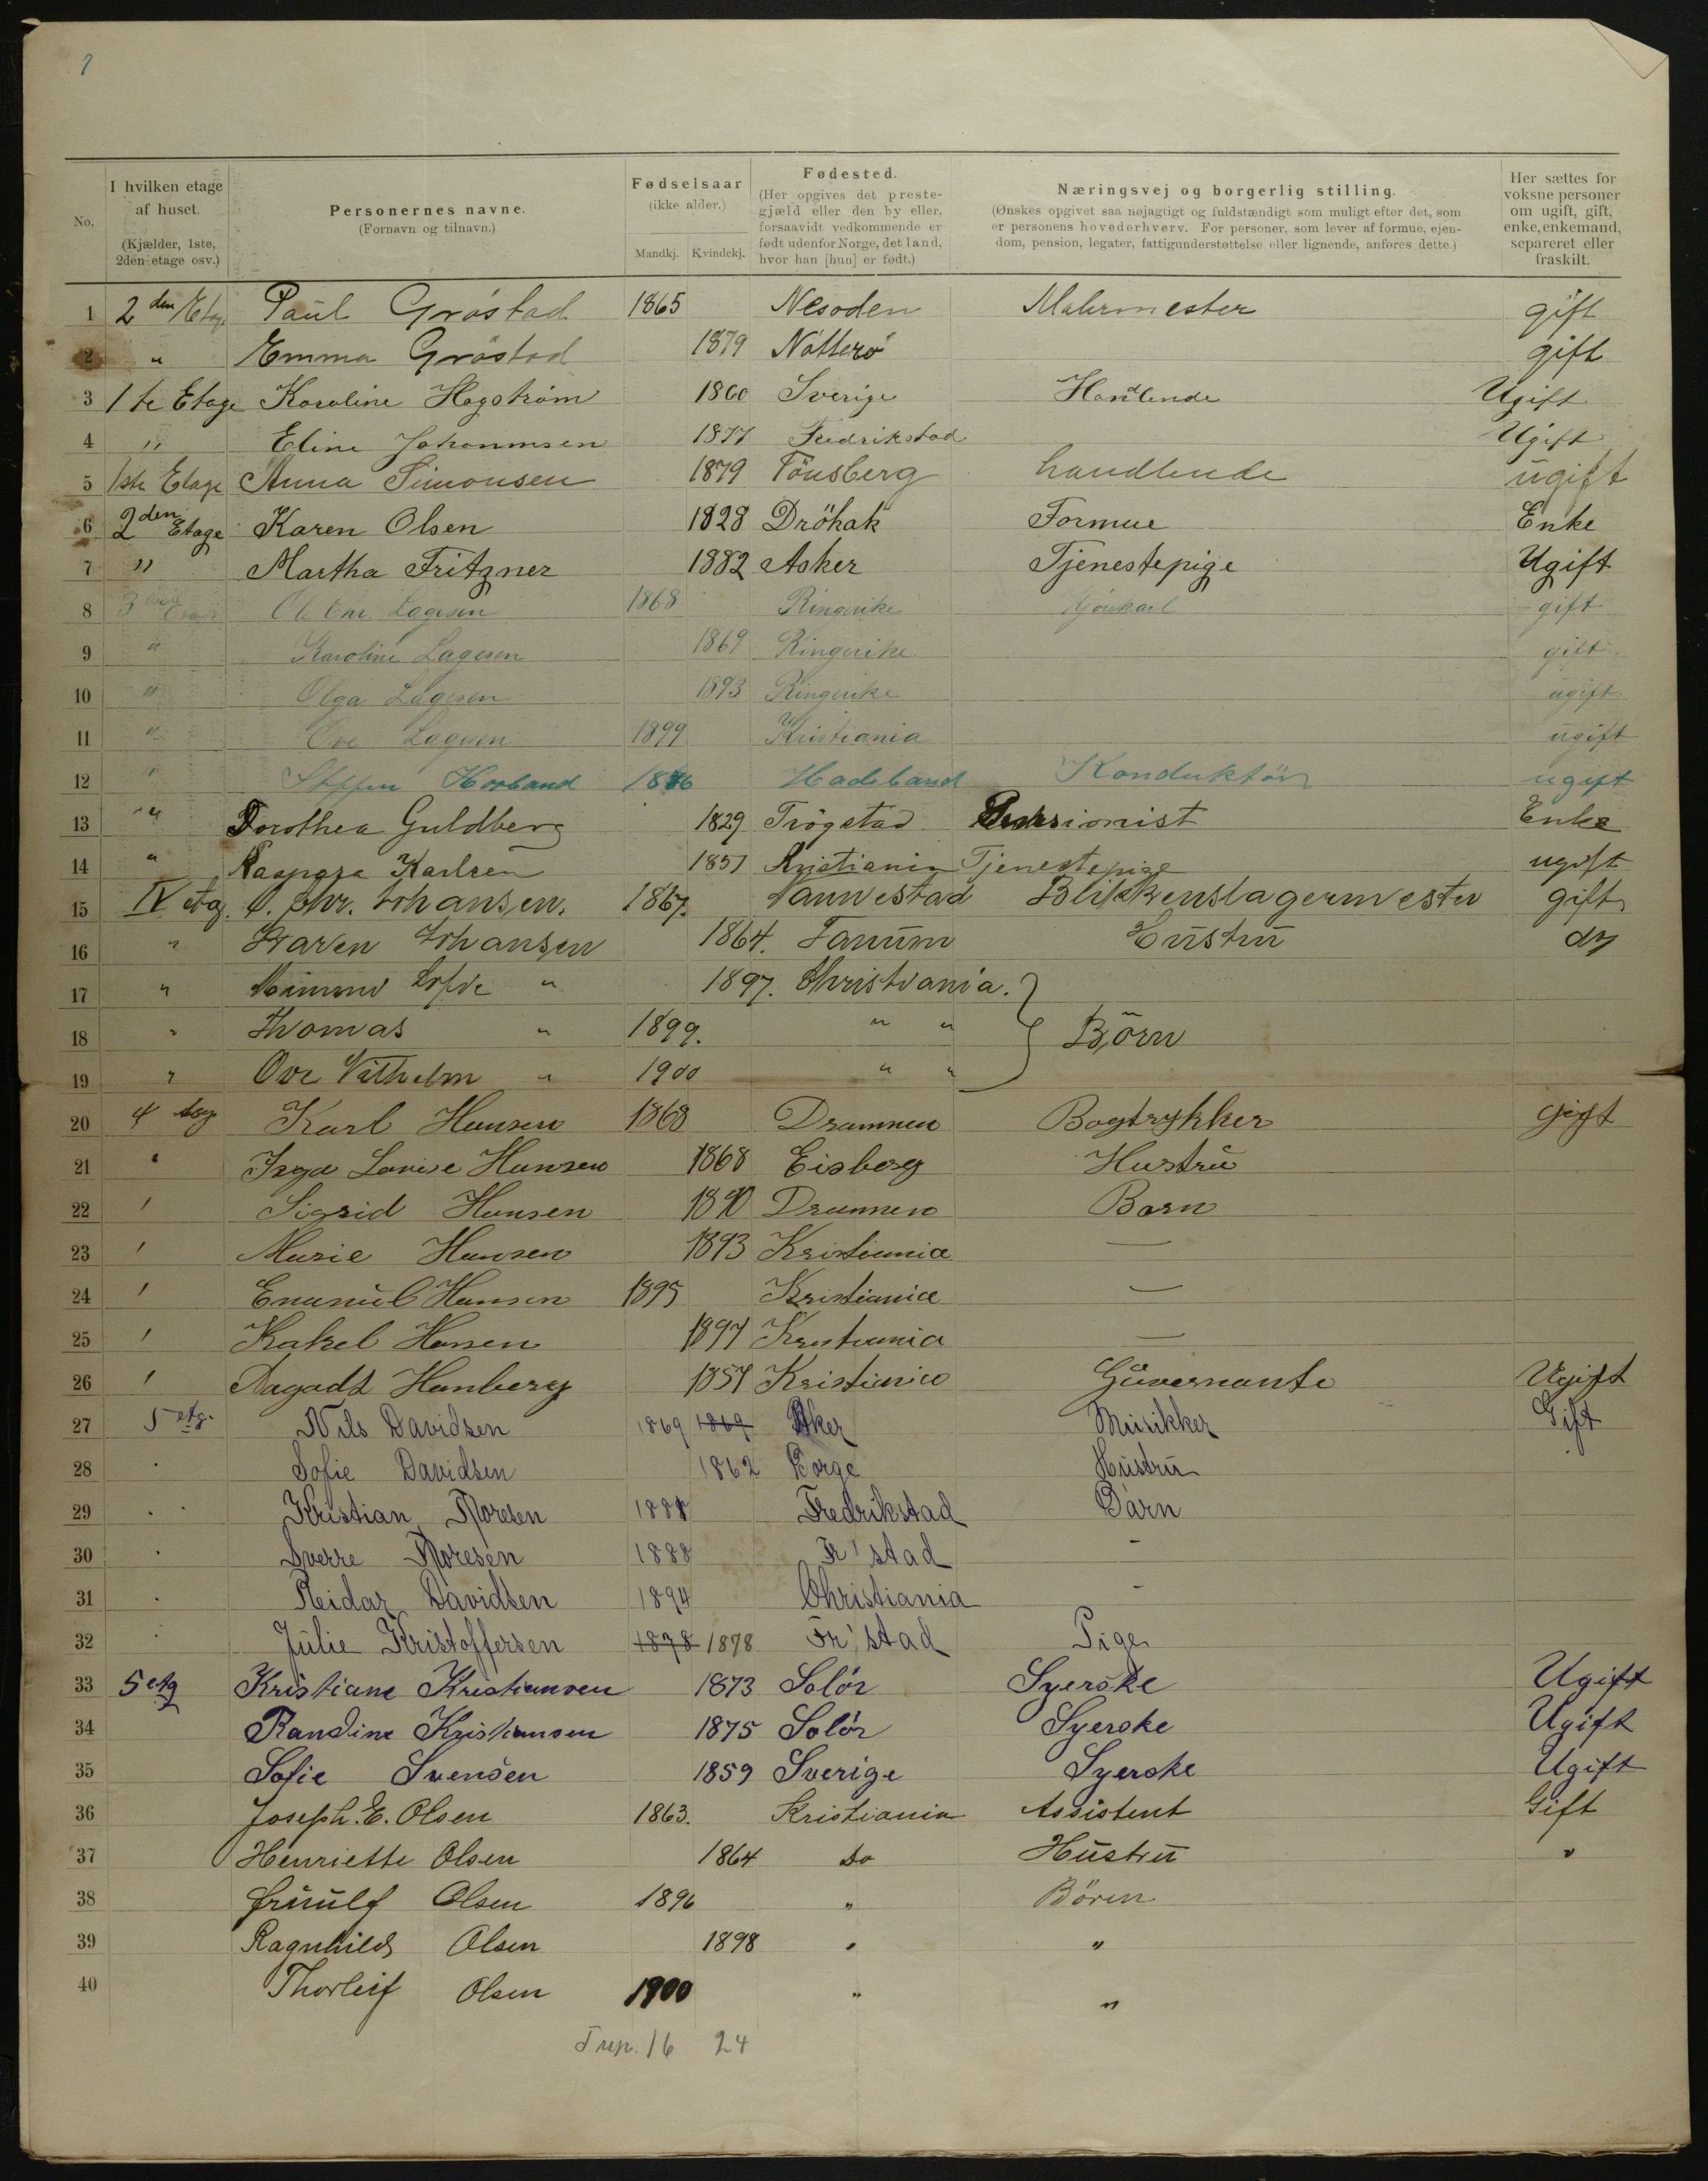 1
No.
I hvilken etage af huset.
(Kjælder, 1ste, 2den etage osv.)
Personernes navne.
(Fornavn og tilnavn.)
Fødselsaar
(ikke alder.)
Mandkj. Kvindekj.
Fødested.
(Her opgives det prestegjæld eller den by eller, forsaavidt vedkommende er født udenfor Norge, det land, hvor han [hun] er født.)
Næringsvej og borgerlig stilling.
(Ønskes opgivet saa nøjagtigt og fuldstændigt som muligt efter det, som er personens hovederhverv. For personer, som lever af formue, ejendom, pension, legater, fattigunderstøttelse eller lignende, anføres dette.)
Her sættes for voksne personer om ugift, gift, enke, enkemand, separeret eller fraskilt.
1 2den Etag Paul Gröstad 1865 Nesoden Malermester gift
2 " Emma Gröstad 1879 Nötterö gift
3 1te Etage Karoline Hagström 1860 Sverige Handlende Ugift
4 " Eline Johannsen 1877 Fredrikstad Ugift
5 1ste Etage Anna Simonsen 1879 Tönsberg handlende ugift
6 2den Etage Karen Olsen 1828 Dröbak Formue Enke
7 " Martha Fritzner 1882 Asker Tjenestepige Ugift
8 3 Lagesen 1868 Ringerike gift
9 " Karoline Lagesen 1869 Ringerike gift
10 " Olga Lagesen 1893 Ringerike ugift
11 " Ove Lagesen 1899 Kristiania ugift
12 " Steffen 1876 Hadeland Konduktör ugift
13 " Dorothea Guldberg 1829 Trögstad Pensionist Enke
14 " Kaspara Karlsen 1857 Kristiania Tjenestepige ugift
15 IV etag. Chr. Johansen. 1867. Nannestad Blikkenslagermester gift
16 " Karen Johansen 1864. Fanum Hustru do
17 " Sofie " 1897. Christiania.
18 " Thomas " 1899. " " Börn
19 " Ove Vilhelm " 1900 " "
20 4 Karl Hansen 1868 Drammen Bogtrykker gift
21 " Inga Lovise Hansen 1868 Eisberg Hustru
22 " Sigrid Hansen 1890 Drammen Barn
23 " Marie Hansen 1893 Kristiania —
24 " Emanuel Hansen 1895 Kristiania —
25 " Rakel Hansen 1897 Kristiania —
26 " Aagadt Hamberg 1857 Kristiania Guvernante Ugift
27 5 etg. Nils Davidsen 1869 1869 Aker Musikker Gift
28 " Sofie Davidsen 1862 Borge Hustru
29 " Kristian Thoresen 1888 Fredrikstad Barn
30 " Sverre Thoresen 1888 Fr'stad -
31 " Reidar Davidsen 1894 Christiania -
32 " Julie Kristoffersen 1878 1878 Fr'stad Pige
33 5 etg Kristiane Kristiansen 1873 Solör Syerske Ugift
34 Randine Kristiansen 1875 Solör Syerske Ugift
35 Sofie Svensen 1859 Sverige Syerske Ugift
36 Joseph. E. Olsen 1863. Kristiania Assistent Gift
37 Henriette Olsen 1864 do Hustru "
38 Olsen 1896 " Börn
39 Ragnhild Olsen 1898 " "
40 Thorleif Olsen 1900 " "
16 24